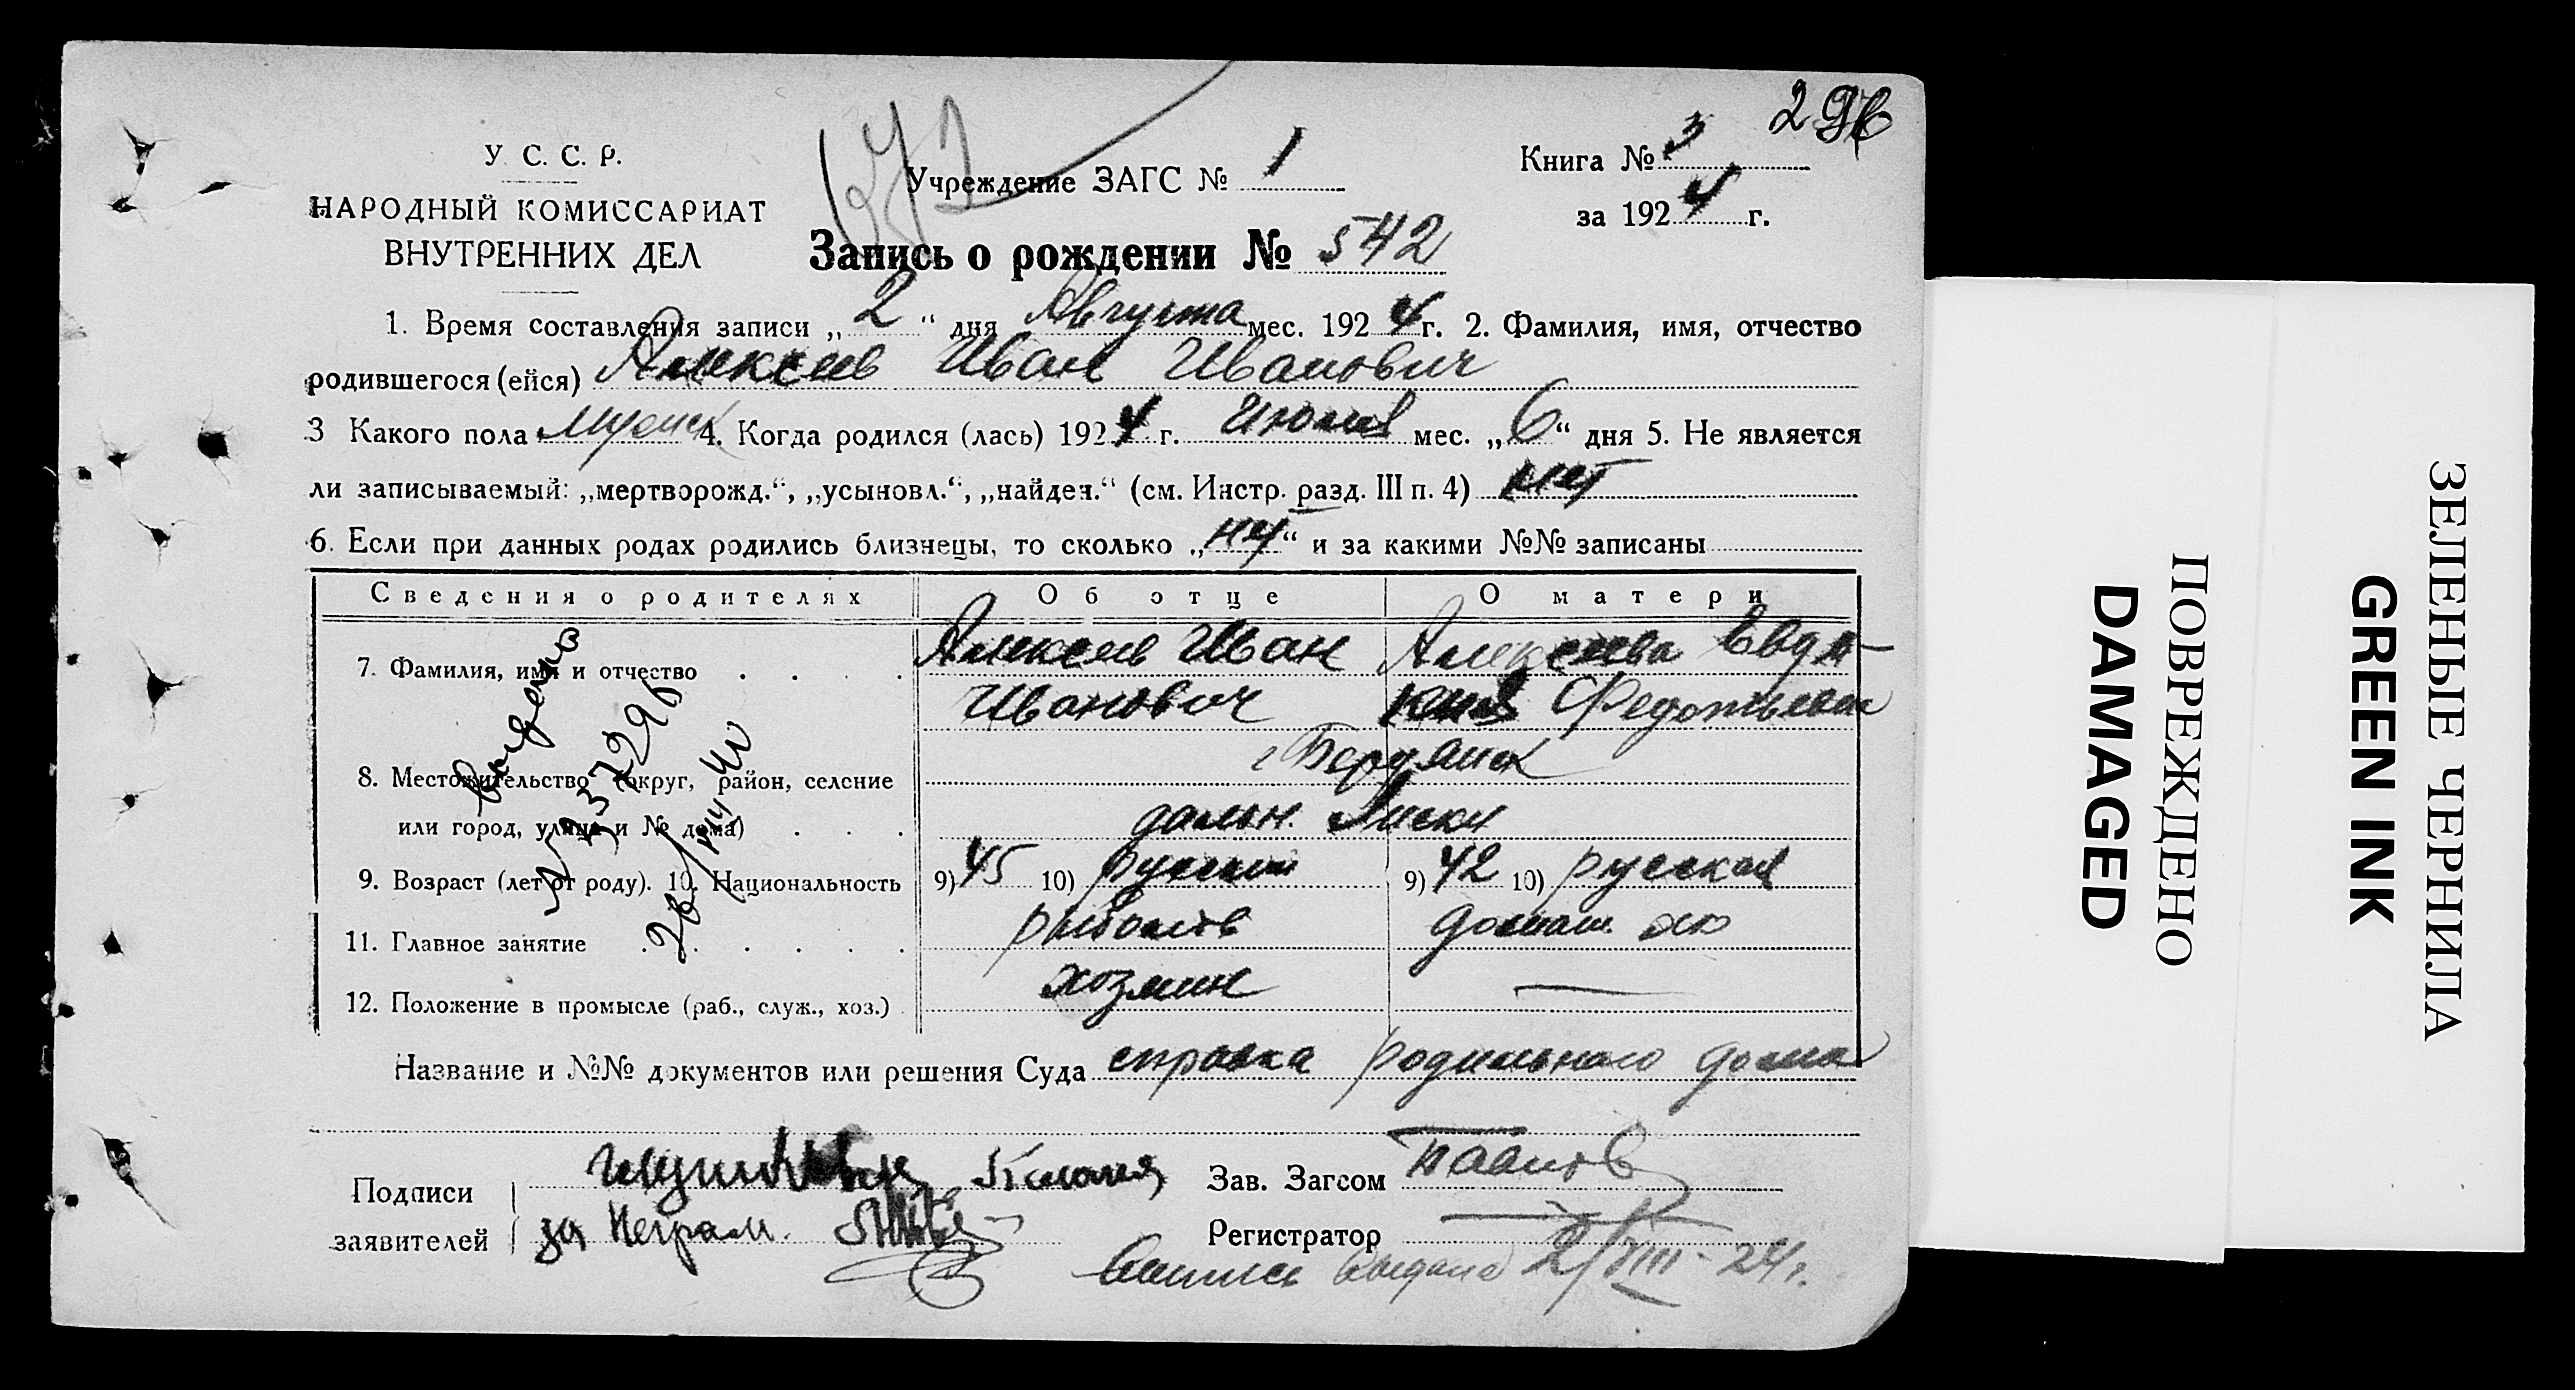 296
У. С. С. Р.
НАРОДНЫЙ КОМИССАРИАТ
ВНУТРЕННИХ ДЕЛ
Учреждение ЗАГС № 1
Книга № 3
за 1924 г.
Запись о рождении № 542
1. Время составления записи „2“ дня Августа мес. 1924 г. 2. Фамилия, имя, отчество
родившегося (ейся) Алексеев Иван Иванович
3 Какого пола мужск 4. Когда родился (лась) 1924 г. Июля мес. „6“ дня 5. Не является
ли записываемый: „мертворожд.“, „усыновл.“, „найден.“ (см. Инстр. разд. III п. 4) нет
6. Если при данных родах родились близнецы, то сколько „нет“ и за какими №№ записаны
Сведения о родителях Об отце О матери
7. Фамилия, имя и отчество Алексеев Иван Алексеева Евдо-
Иванович кия Федотьевна
г Бердянск
8. Местожительство (округ, район, селение
или город, улица и № дома) дальн. Лиски
9. Возраст (лет от роду). 10. Национальность 9) 45 10) русский 9) 42 10) русская
11. Главное занятие рыболов домаш. хо
12. Положение в промысле (раб., служ., хоз.) хозяин —
Название и №№ документов или решения Суда справка родильного дома
Подписи
заявителей за Неграм.
Зав. Загсом
Регистратор
выдана 2/VIII-24 г.
ПОВРЕЖДЕНО
DAMAGED
ЗЕЛЕНЫЕ ЧЕРНИЛА
GREEN INK